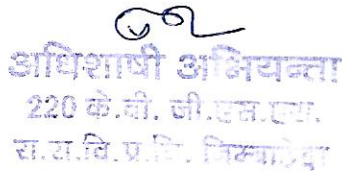 अधिशाषी अभियन्ता
220 के.वी. जी.एस.एस.
रा.रा.वि.प्र.नि. निम्बाहेड़ा